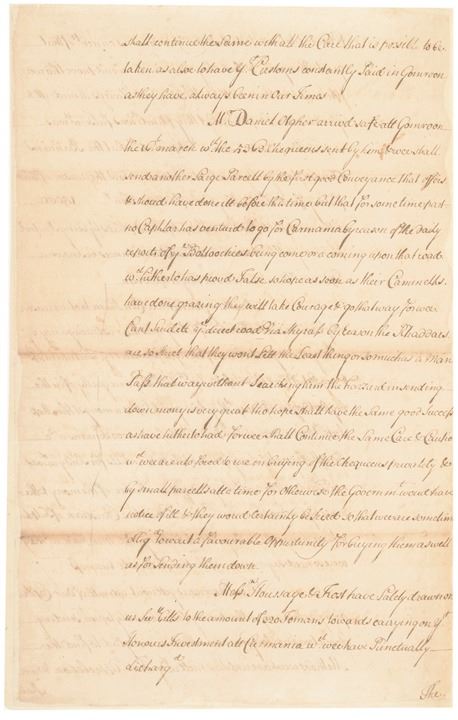 shall continue the Same with all the Care that is possible to be
taken as also to have yr. Customs constantly paid in Gomroon
as they have always been in Our Times
Mr. Daniel Olgher arrivd safe att Gomroon
the 16th march wth. the 4363 Chequeens sent by him & wee shall
send another Large Parcell by the first good Conveyance that offers
& should have done itt before this time but that for some time past
no Caphlar has venturd to go for Carmania by reason of the Daily
reports of ye. Balloochies being come or a coming upon that road
wch. hitherto has provd False so hope as soon as their Cammells
have done grazing they will take Courage & go that way for wee
Cant Send itt ye. direct road Via Shyrass by reason the Rhaddars
are so Strict that they wont Lett the Least thing or so much as a Man
Pass that way without Searching him the hazzard in sending
down money is very great tho hope shall have the Same good Success
as have hitherto had for wee shall Continue the Same Care &
wch. wee are also forcd to use in buying of the Chequeens privately &
by small parcells att a time for Otherwise the Goverment woud have
notice of itt & they woud certainly be Seizd so that wee are sometimes
Oblig'd to wait a favourable Oppurtunity for buying them as well
as for Sending them down.
Messrs. Houssaye & Frost have Lately drawn on
us Sevrl. bills to the amount of 320 Tomans towards carrying on yr.
Honours Investment att Carmania wch. wee have Punctually
dischargd.
The